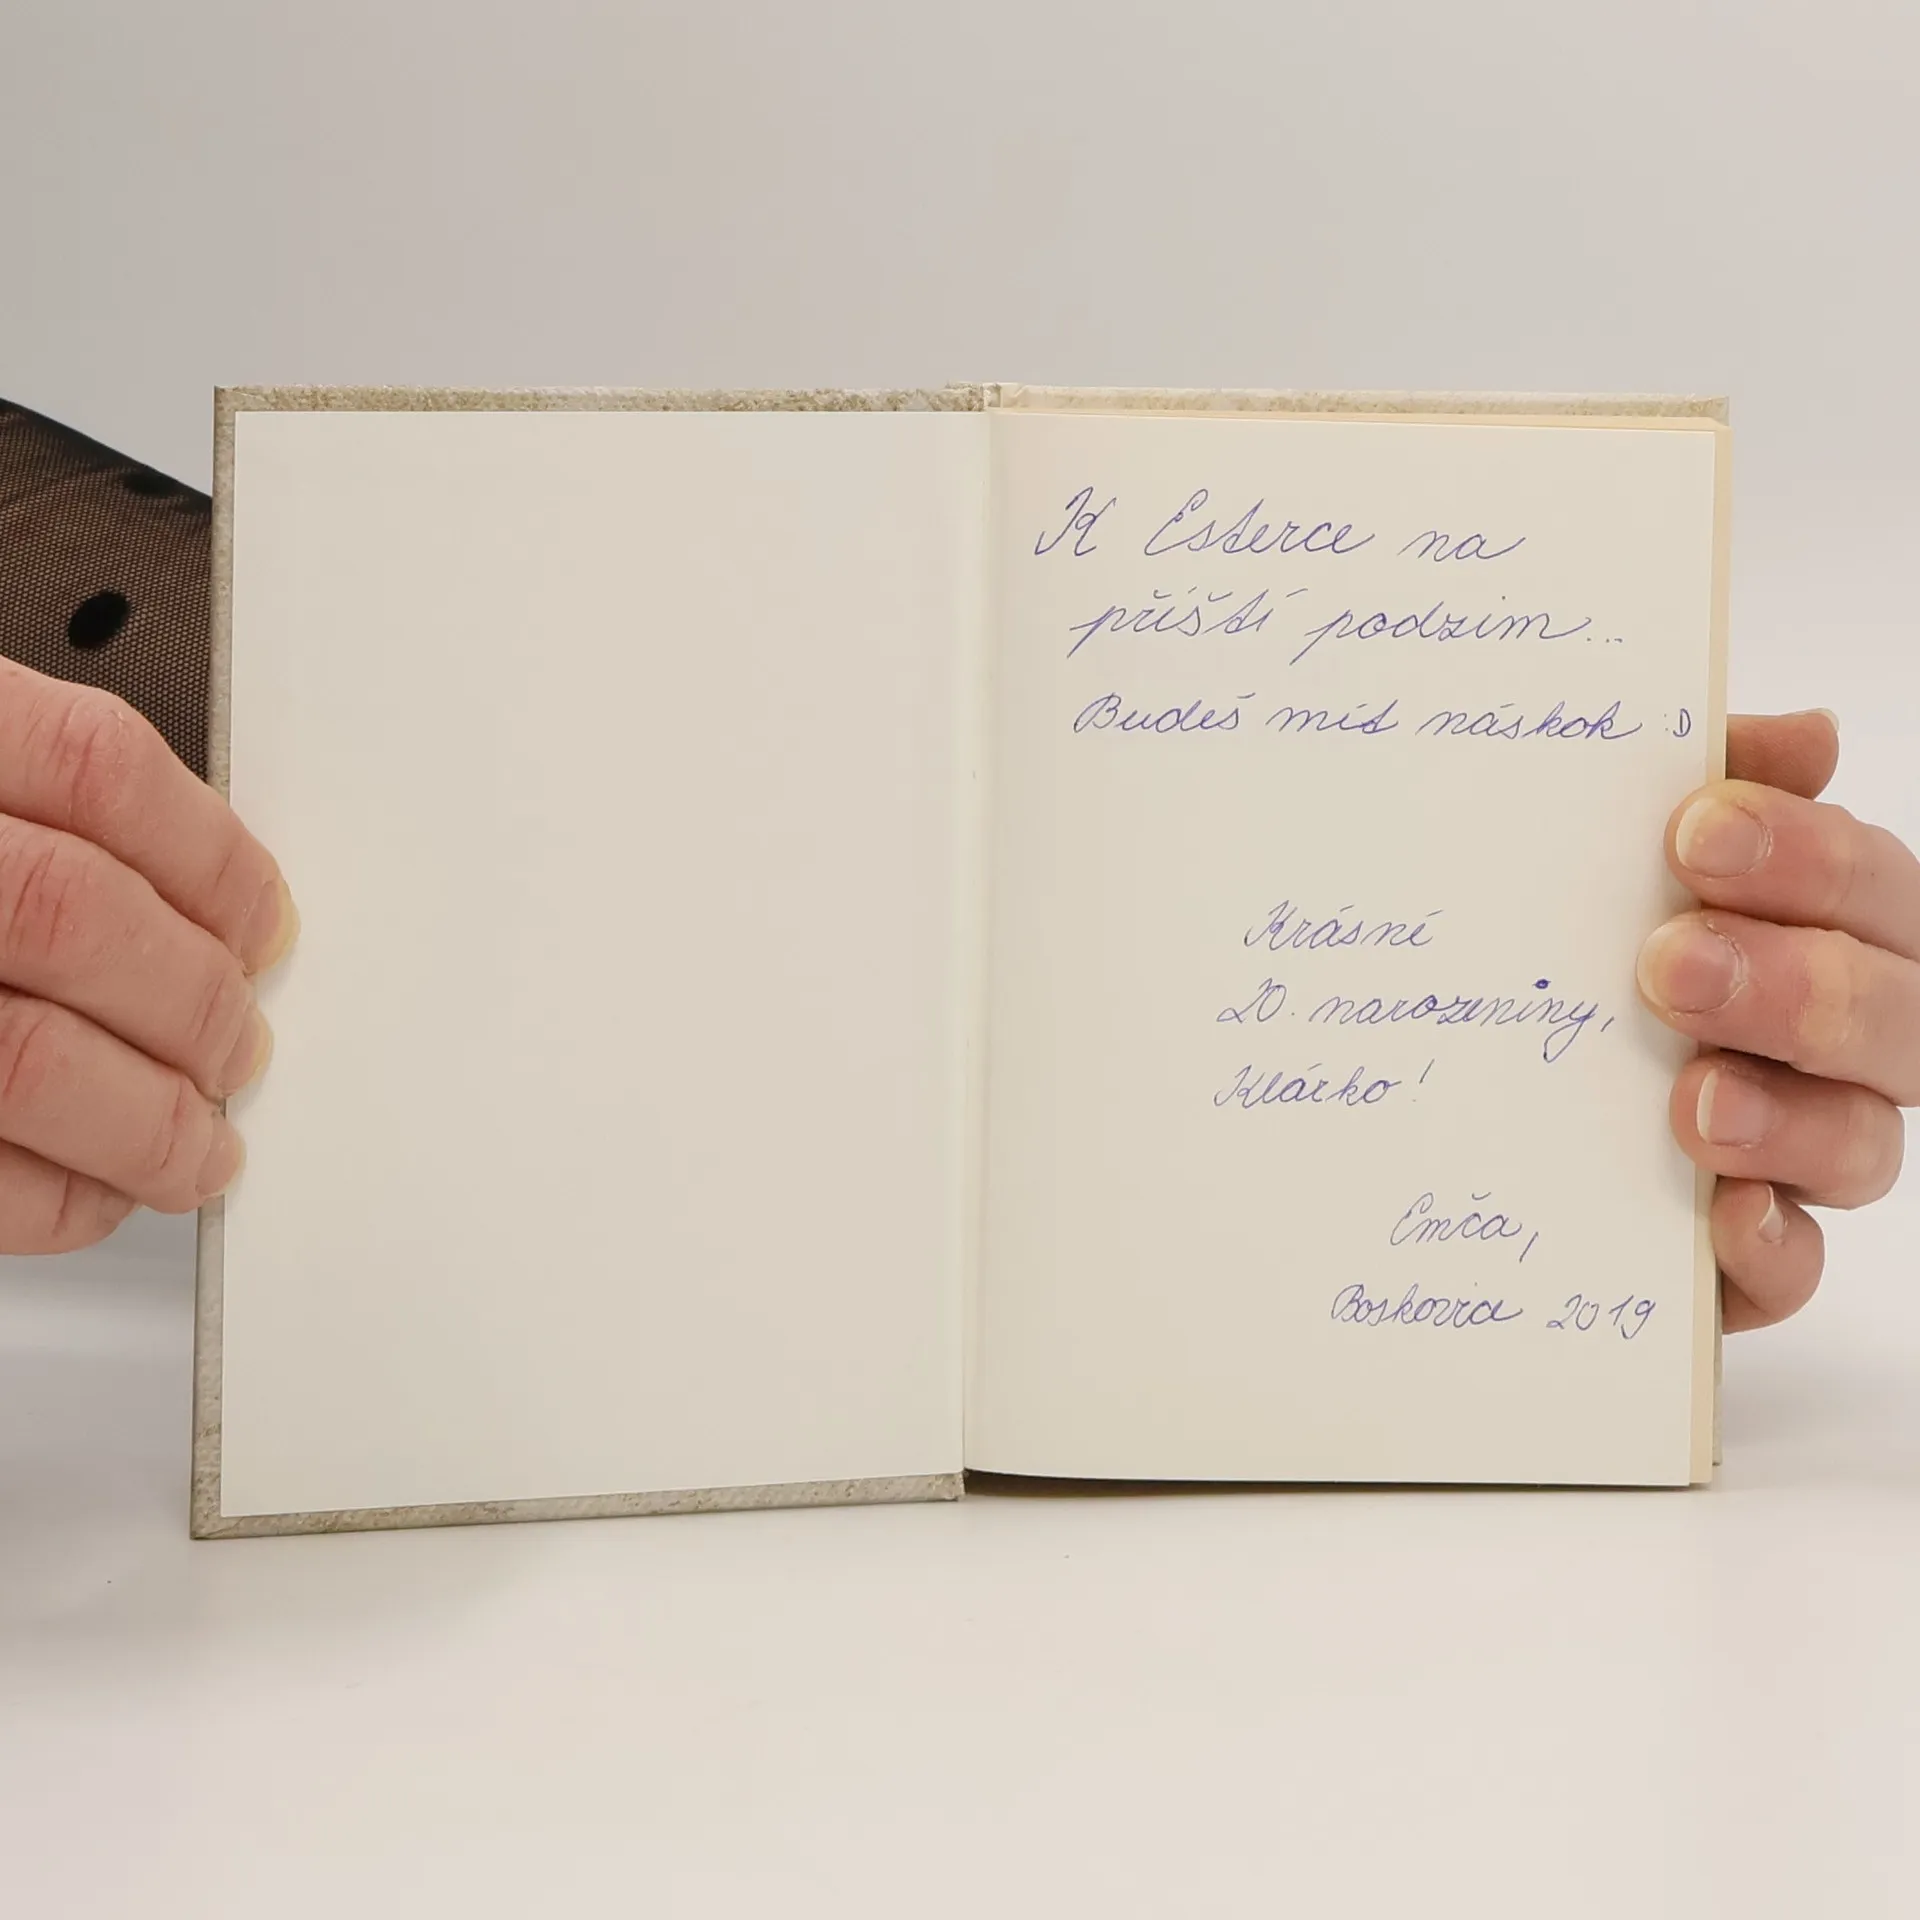 K Esterce na
příští podzim...
Budeš mít náskok :D
Krásné
20. narozeniny,
Klárko!
Emča,
Boskovia 2019